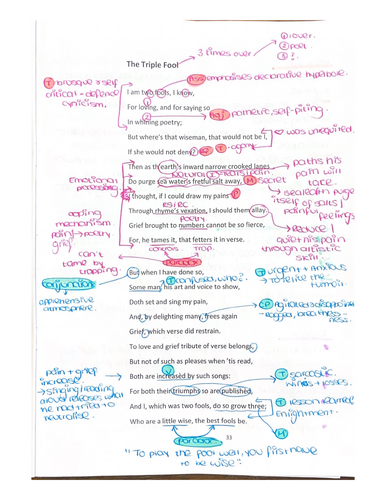 The Triple Fool
3 times over
① lover.
② poet
③ ?
T brusque + self critical - defence cynicism.
emphasises declarative hyperbole.
I am two fools, I know,
For loving, and for saying so
pathetic, self-pitying
In whining poetry;
But where's that wiseman, that would not be I,
If she would not deny?
T - agony
love was unrequited.
Then as th'earth's inward narrow crooked lanes
paths his pain will take
natural
Emotional processing.
Do purge sea water's fretful salt away,
M Secret
searocean purge itself of salts / painful feelings
I thought, if I could draw my pains
coping mechanism pain → poetry grief
Through rhyme's vexation, I should them allay.
reduce / quiet his pain through artistic skill
poetry
Grief brought to numbers cannot be so fierce,
For, he tames it, that fetters it in verse.
controls
trap.
can't tame by trapping.
paradox
conjunction
But when I have done so,
T confused, who?
T urgent + anxious to relieve the turmoil.
apprehensive atmosphere.
Some man, his art and voice to show,
Doth set and sing my pain,
And, by delighting many, frees again
Grief, which verse did restrain.
To love and grief tribute of verse belongs,
But not of such as pleases when 'tis read,
pain + grief increase
Both are increased by such songs:
T sarcastic
wins + losses.
→ singing/reading aloud releases what he had tried to neutralise.
For both their triumphs so are published,
And I, which was two fools, do so grow three;
T lesson learned Enlightment.
Who are a little wise, the best fools be.
M
paradox
33
"To play the fool well, you first have to be wise"